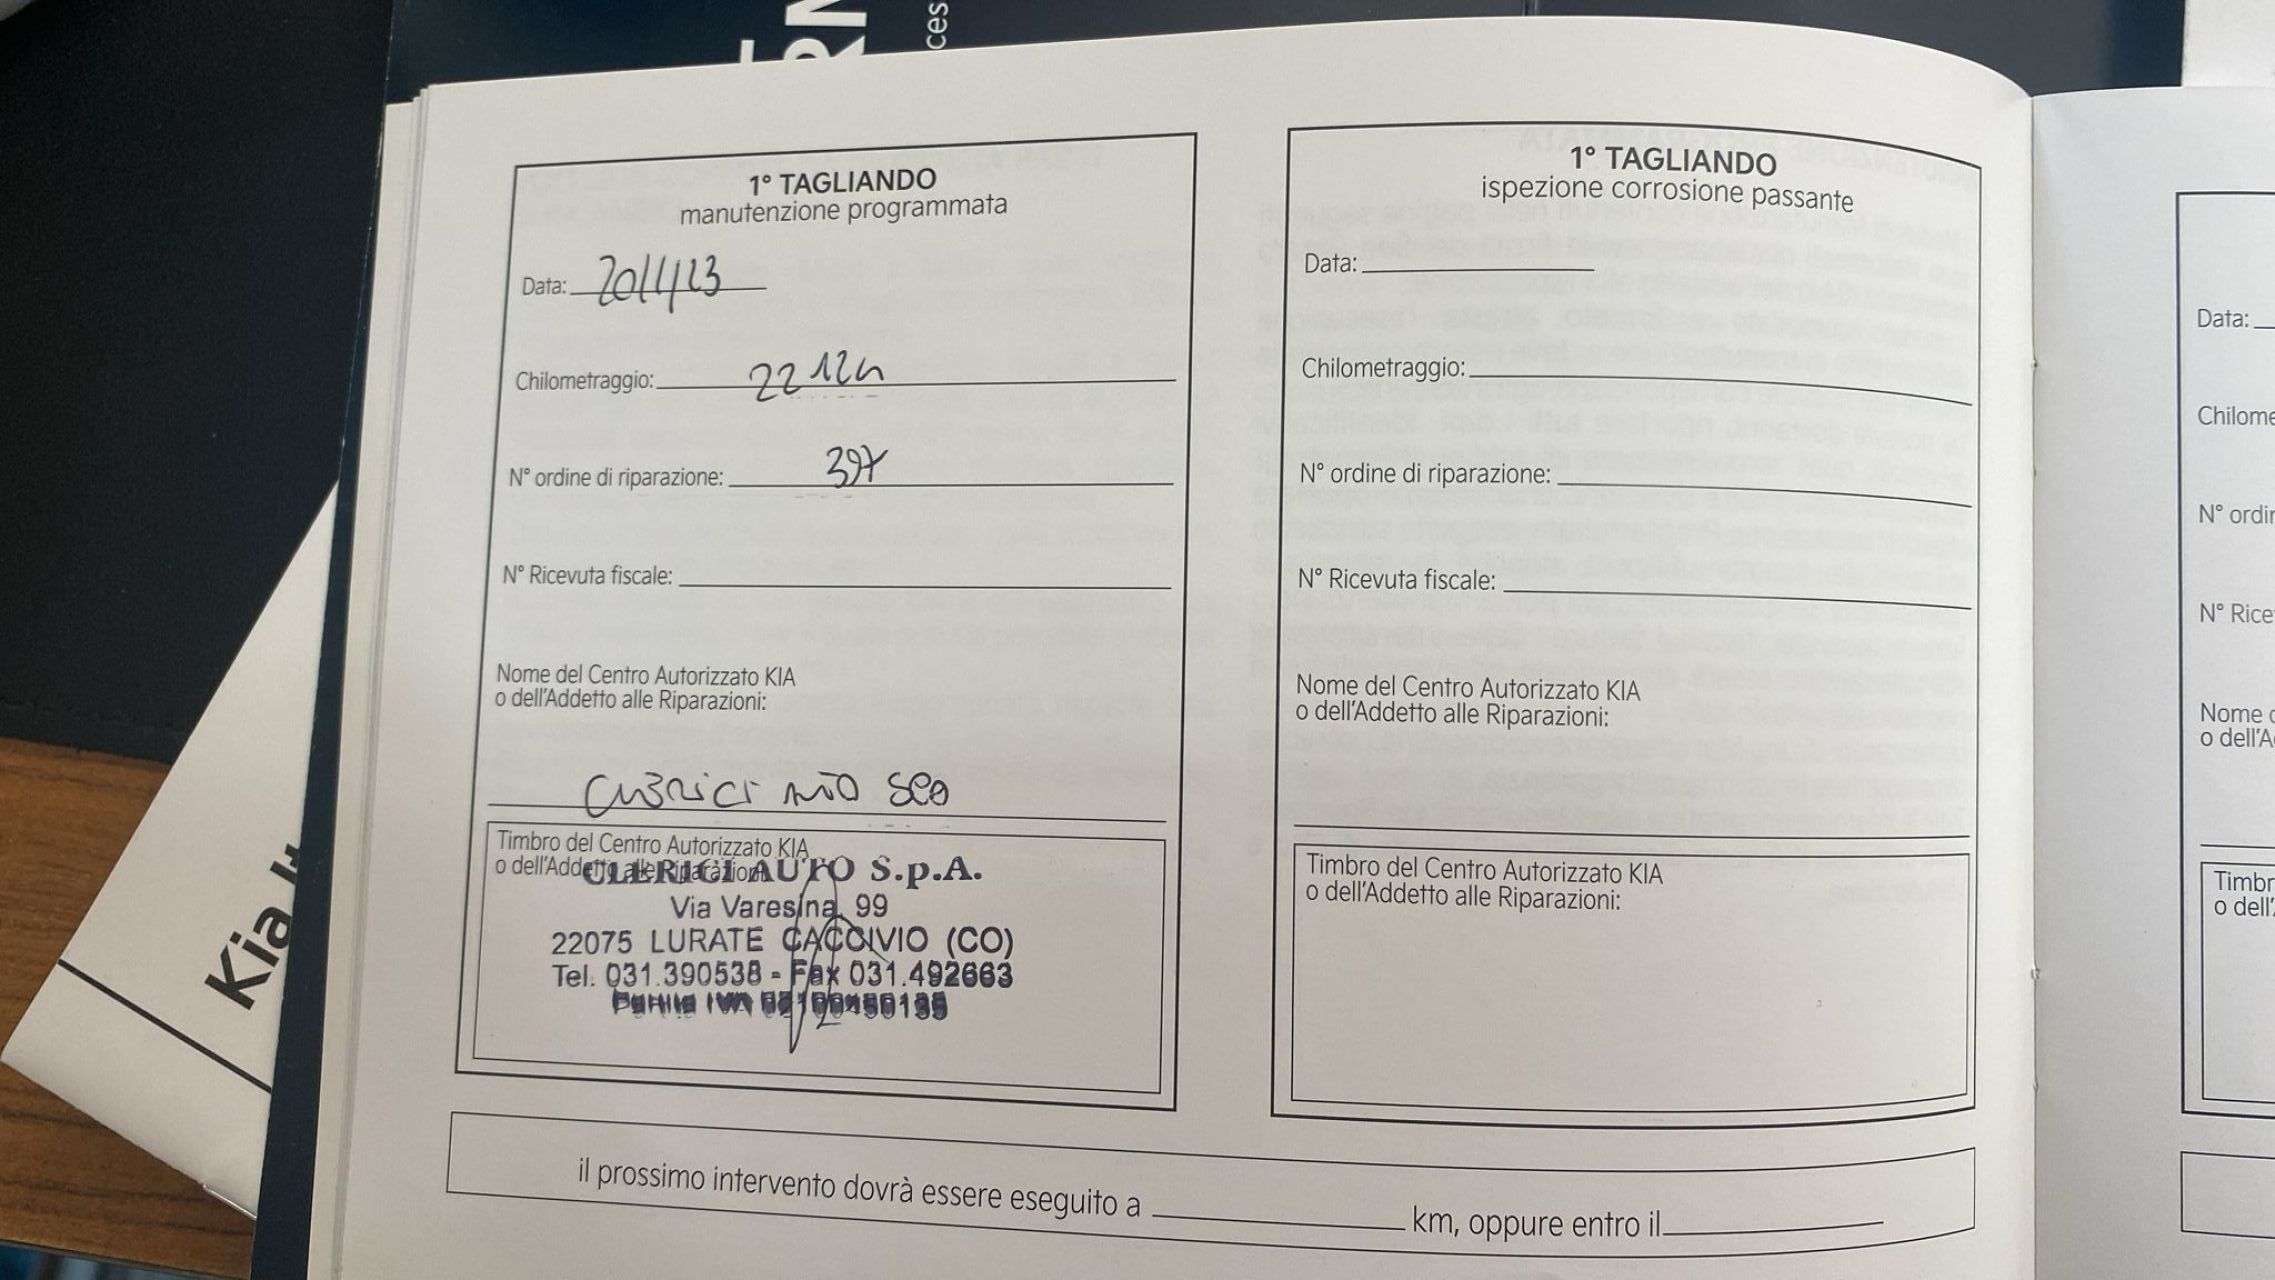 ces
1° TAGLIANDO
manutenzione programmata
Data: 20/1/23
Chilometraggio:
N° ordine di riparazione: 397
N° Ricevuta fiscale:
Nome del Centro Autorizzato KIA
o dell'Addetto alle Riparazioni:
Timbro del Centro Autorizzato KIA
o dell'Addetto alle Riparazioni:
CLERICI AUTO S.p.A.
Via Varesina, 99
22075 LURATE CACCIVIO (CO)
Tel. 031.390538 - Fax 031.492663
Partita IVA
1° TAGLIANDO
ispezione corrosione passante
Data:
Chilometraggio:
N° ordine di riparazione:
N° Ricevuta fiscale:
Nome del Centro Autorizzato KIA
o dell'Addetto alle Riparazioni:
Timbro del Centro Autorizzato KIA
o dell'Addetto alle Riparazioni:
il prossimo intervento dovrà essere eseguito a km, oppure entro il
Data:
Chilome
N° ordin
N° Rice
Nome
o dell'A
Timbr
o dell'
Kia